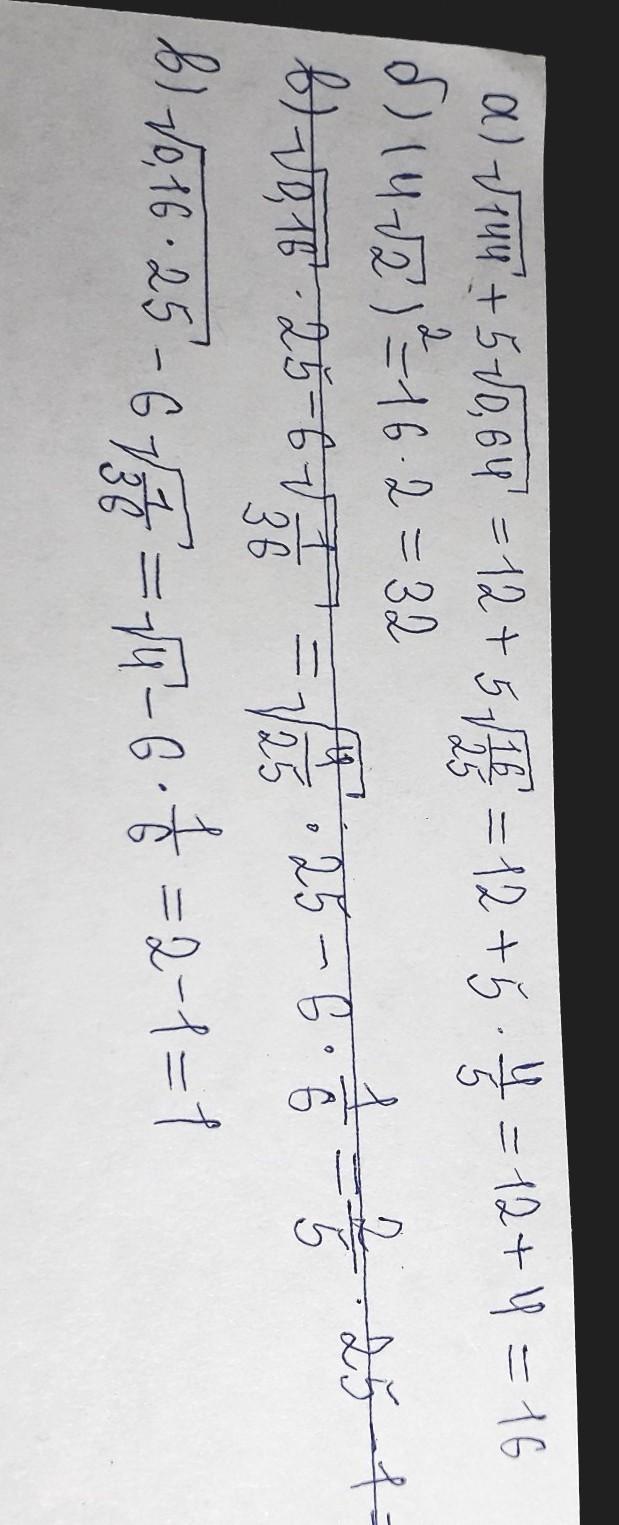 а) √144 + 5√0,64 = 12 + 5√16/25 = 12 + 5 · 4/5 = 12 + 4 = 16
б) (4√2)² = 16 · 2 = 32
в) √0,16 · 25 - 6√1/36 = √4/25 · 25 - 6 · 1/6 = 2/5 · 25 - 1 =
в) √0,16 · 25 - 6√1/36 = √4 - 6 · 1/6 = 2 - 1 = 1